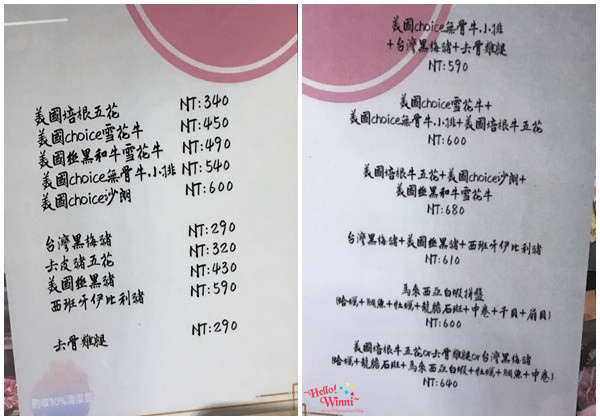 美國培根五花 NT:340
美國choice雪花牛 NT:450
美國極黑和牛雪花牛 NT:490
美國choice無骨牛小排 NT:540
美國choice沙朗 NT:600
台灣黑梅豬 NT:290
去皮豬五花 NT:320
美國極黑豬 NT:430
西班牙伊比利豬 NT:590
去骨雞腿 NT:290
酌收10%清潔費
美國choice無骨牛小排
+台灣黑梅豬+去骨雞腿
NT:590
美國choice雪花牛+
美國choice無骨牛小排+美國培根牛五花
NT:600
美國培根牛五花+美國choice沙朗+
美國極黑和牛雪花牛
NT:680
台灣黑梅豬+美國極黑豬+西班牙伊比利豬
NT:610
馬來西亞白蝦拼盤
(蛤蜆+鯛魚+牡蠣+龍膽石斑+中卷+干貝+扇貝)
NT:600
美國培根牛五花or去骨雞腿or台灣黑梅豬
(蛤蜆+龍膽石斑+馬來西亞白蝦+牡蠣+鯛魚+中卷)
NT:640
Hello!
Winni